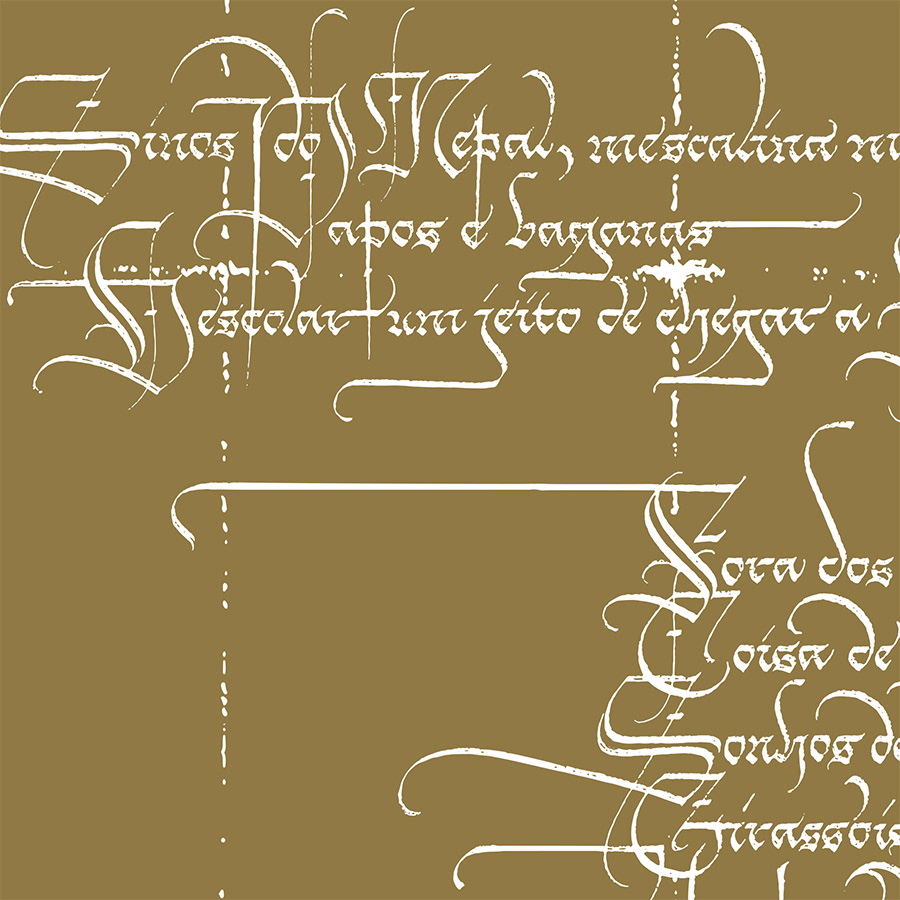 Sinos do Nepal, mescalina
Papos e baganas
Descolar um jeito de chegar a
Fora dos
Coisa de
Sonhos
Girassóis